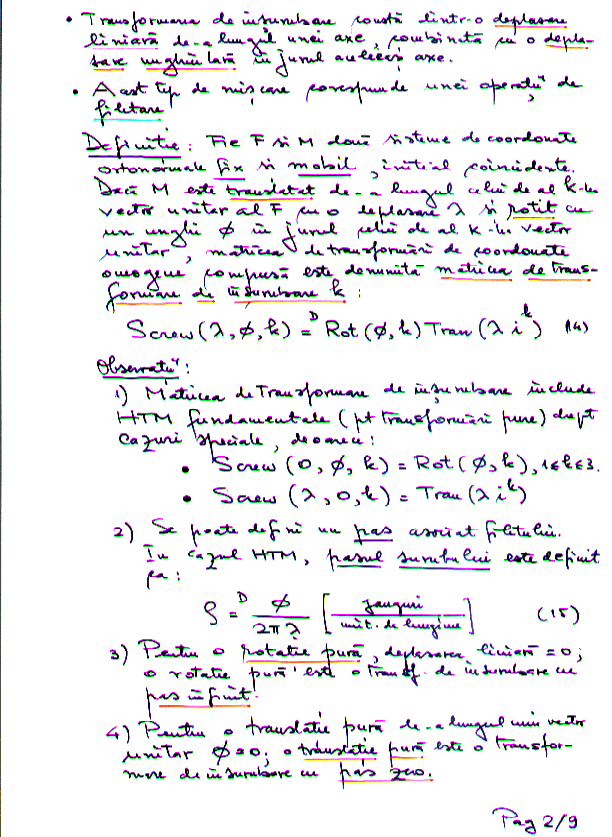 • Transformarea de înșurubare constă dintr-o deplasare
liniară de-a lungul unei axe, combinată cu o depla-
sare unghiulară în jurul aceleeși axe.
• Acest tip de mișcare corespunde unei operații de
filetare
Definiție: Fie F și M două sisteme de coordonate
ortonormale fix și mobil, inițial coincidente.
Dacă M este translatat de-a lungul celui de al k-lea
vector unitar al F cu o deplasare λ și rotit cu
un unghi Φ în jurul celui de al k-lea vector
unitar, matricea de transformări de coordonate
omogene compusă este denumită matricea de trans-
formare de înșurubare k:
Screw(λ, Φ, k) =ᴰ Rot(Φ, k) Tran(λ iᵏ) (14)
Observații:
1) Matricea de Transformare de înșurubare include
HTM fundamentale (pt transformări pure) drept
cazuri speciale, deoarece:
• Screw (0, Φ, k) = Rot(Φ, k), 1≤k≤3.
• Screw (λ, 0, k) = Tran(λ iᵏ)
2) Se poate defini un pas asociat filetului.
În cazul HTM, pasul șurubului este definit
ca:
ρ =ᴰ Φ / 2πλ [ / unit. de lungime] (15)
3) Pentru o rotație pură, deplasarea liniară = 0;
o rotație pură este o transf. de înșurubare cu
pas infinit.
4) Pentru o translație pură de-a lungul unui vector
unitar Φ=0; o translație pură este o transfor-
mare de înșurubare cu pas zero.
Pag 2/9